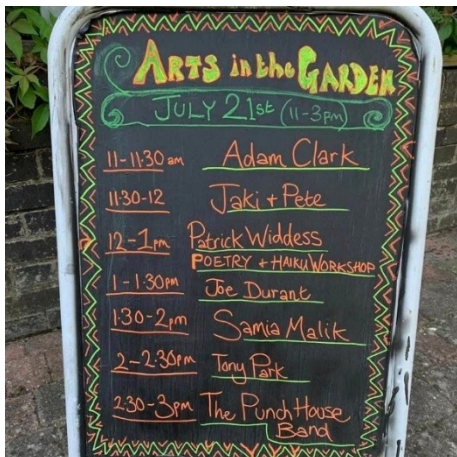 ARTS in the GARDEN
JULY 21st (11-3pm)
11-11:30 am Adam Clark
11:30-12 Jaki + Pete
12-1pm Patrick Widdess
POETRY + HAIKU WORKSHOP
1-1:30pm Joe Durant
1:30-2pm Samia Malik
2-2:30pm Tony Park
2:30-3pm The Punch House
Band